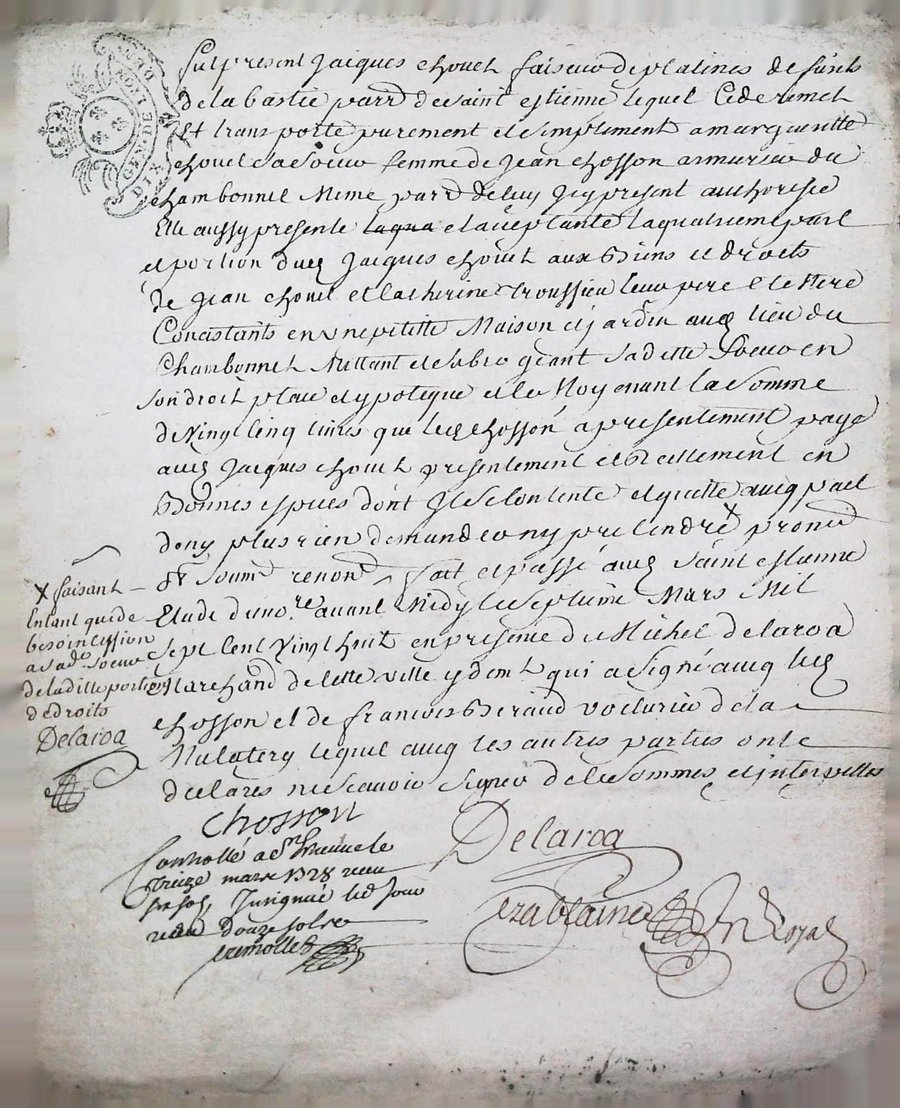 GEN. DE LION
DIX DEN
fut present Jacques chouel faiseur de platines de fusils
de la bastie parr de saint estienne lequel Cede remet
Et transporte purement et simplement a margueritte
chouel sa soeur femme de Jean chosson armurier du
chambonnet Meme parr de luy Icy present authorisée
Elle aussy presente laqua et acceptante la quatrieme part
et portion dud Jacques chouel aux Biens et droits
de Jean chouel et Catherine troussieu leur pere et Mere
Concistants en une petitte Maison et jardin aud lieu du
Chambonnet Mettant et subrogeant sad ette Soeur en
son droit place et ypoteque et le Moyenant la somme
de Vingt Cinq livres que led chosson a presentement payé
aud Jacques chouel presentement et Reellement en
Bonnes especes dont Il se Contente et quitte avecq pact
de ny plus rien demander ny pretendre x promd
& soumd renond fait et passé aud saint estienne
Etude du no.re avant Midy le septieme Mars Mil
sept Cent Vingt huit en presence de Michel delaroa
Marchand de cette ville y demt qui a signé avecq led
chosson et de francois Beraud voiturier de la
Mulatery lequel avecq les autres parties ont
declarés ne scavoir signer de ce sommes et interpellés
x faisant
Entant que de
besoin cession
a sade soeur
de la ditte portion
de droits
Delaroa
chosson
Delaroa
Conrollé a St Etienne le
treize mars 1728 receu
six sols Insignué led jour
receu douze sols
tremollet
Nre Royal